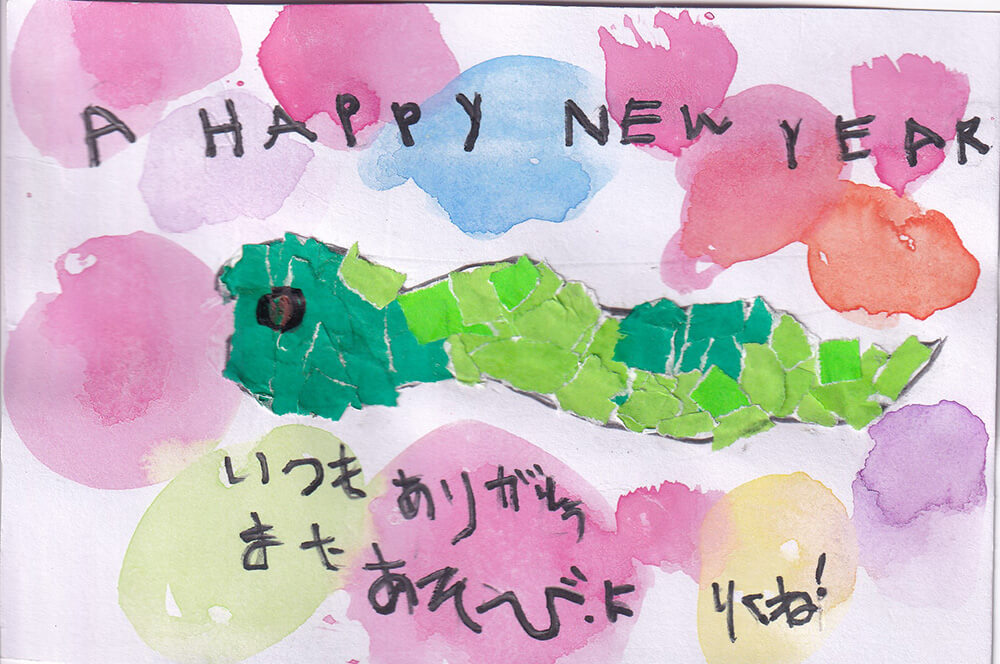 A HAPPY NEW YEAR
いつも ありがとう
また あそびに いくね!